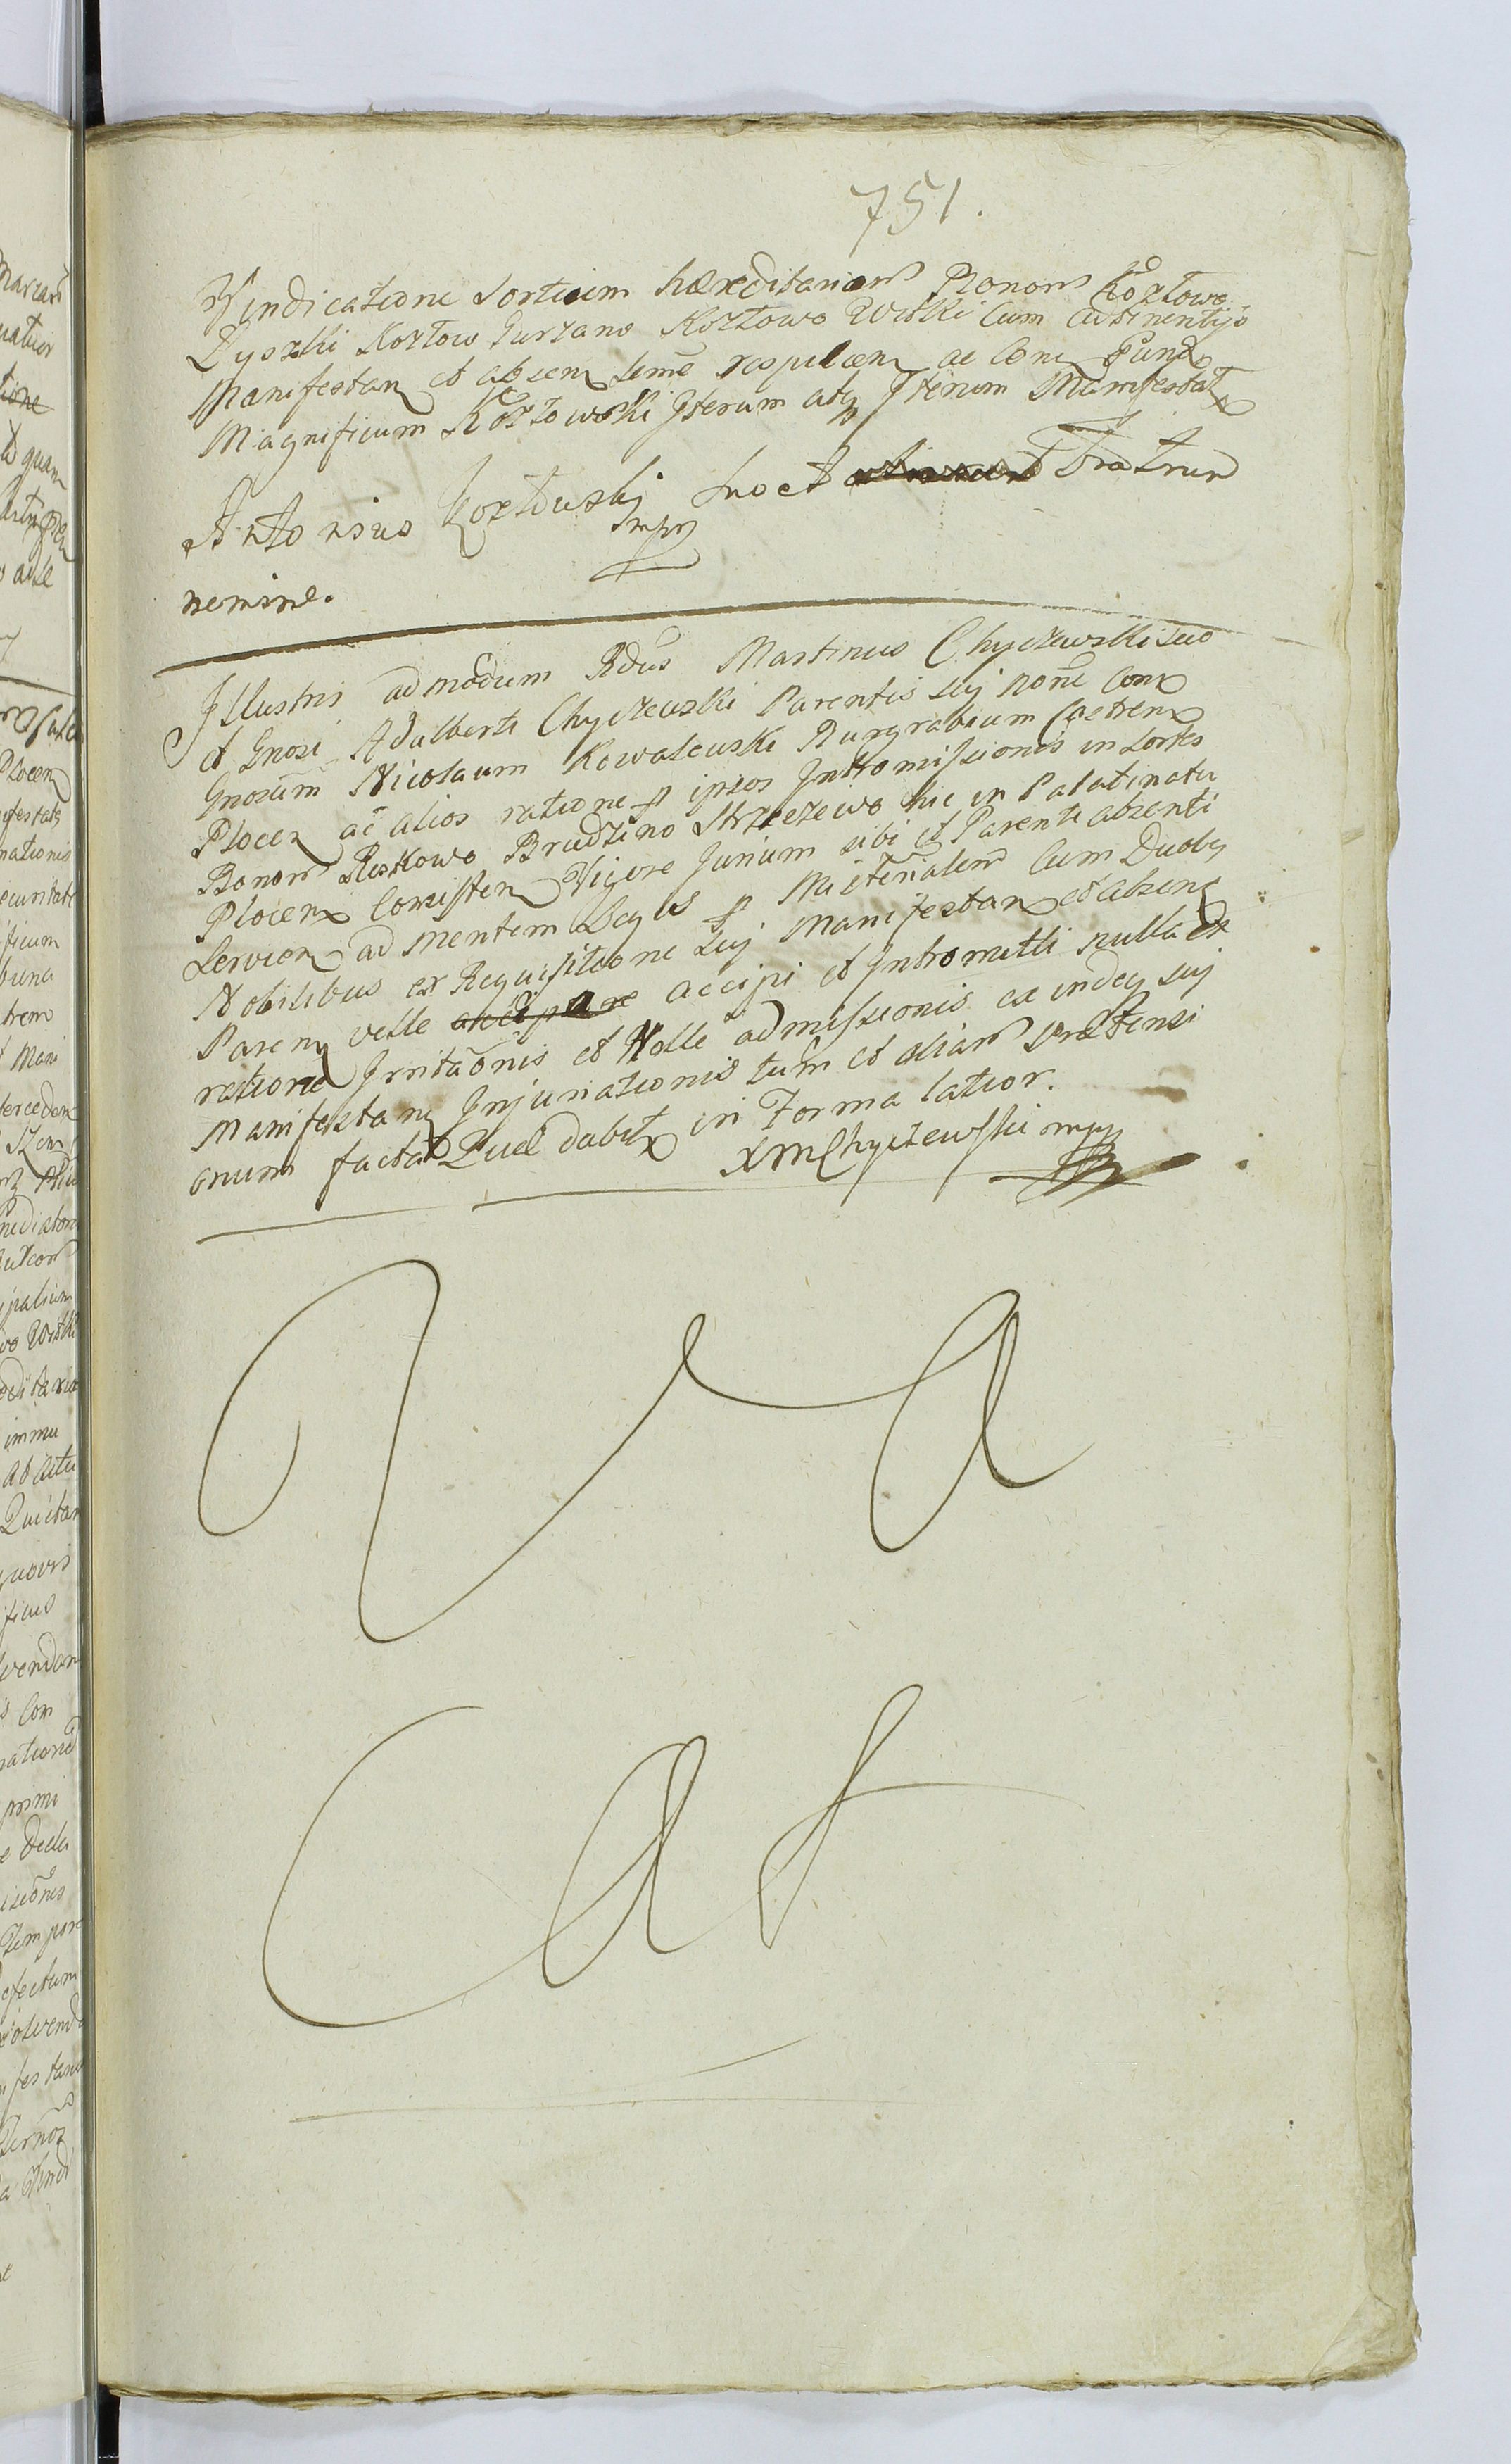 751.
Vindicatione Sortium hæreditariar Bonor Kozłowo
Dyszki Kozłow Gurzano Kozłowo Witki Cum Attinentijs
Manifestan et absen seme respulsem ac Con
Magnificum Kozłowski Iterum atq Iterum Manifestat
Antonius Kozłouski suo et Fratrum
mpp
nemine.
Illustris admodum Rdus Martinus Chyczewski suo
et Gnosi Adalberti Chyczewski Parentis suj noне Con
Gnosum Nicolaum Kowalewski Burgrabium Castren
Plocen ac alios ratione p ipsos Intromissionis in Sortes
Bonor Reskowo Brudzino Strzeżewo hic in Palatinatu
Plocen Consisten Vigore Jurium sibi et Parenti absenti
Servien ad mentem Legis p Mĩsterialem Cum Duobq
Nobilibus ex Requisitione suj Manifestan et absen
Paren velle accipere accipi et Intromitti nulla
ratione Irritaõnis et Nolle admissionis ex indeq suj
Manifestan Injuriationis tum et aliar prætensi
onum facta Quel dabit in Forma latior.
XMChyczewski mpp
Va
Cat